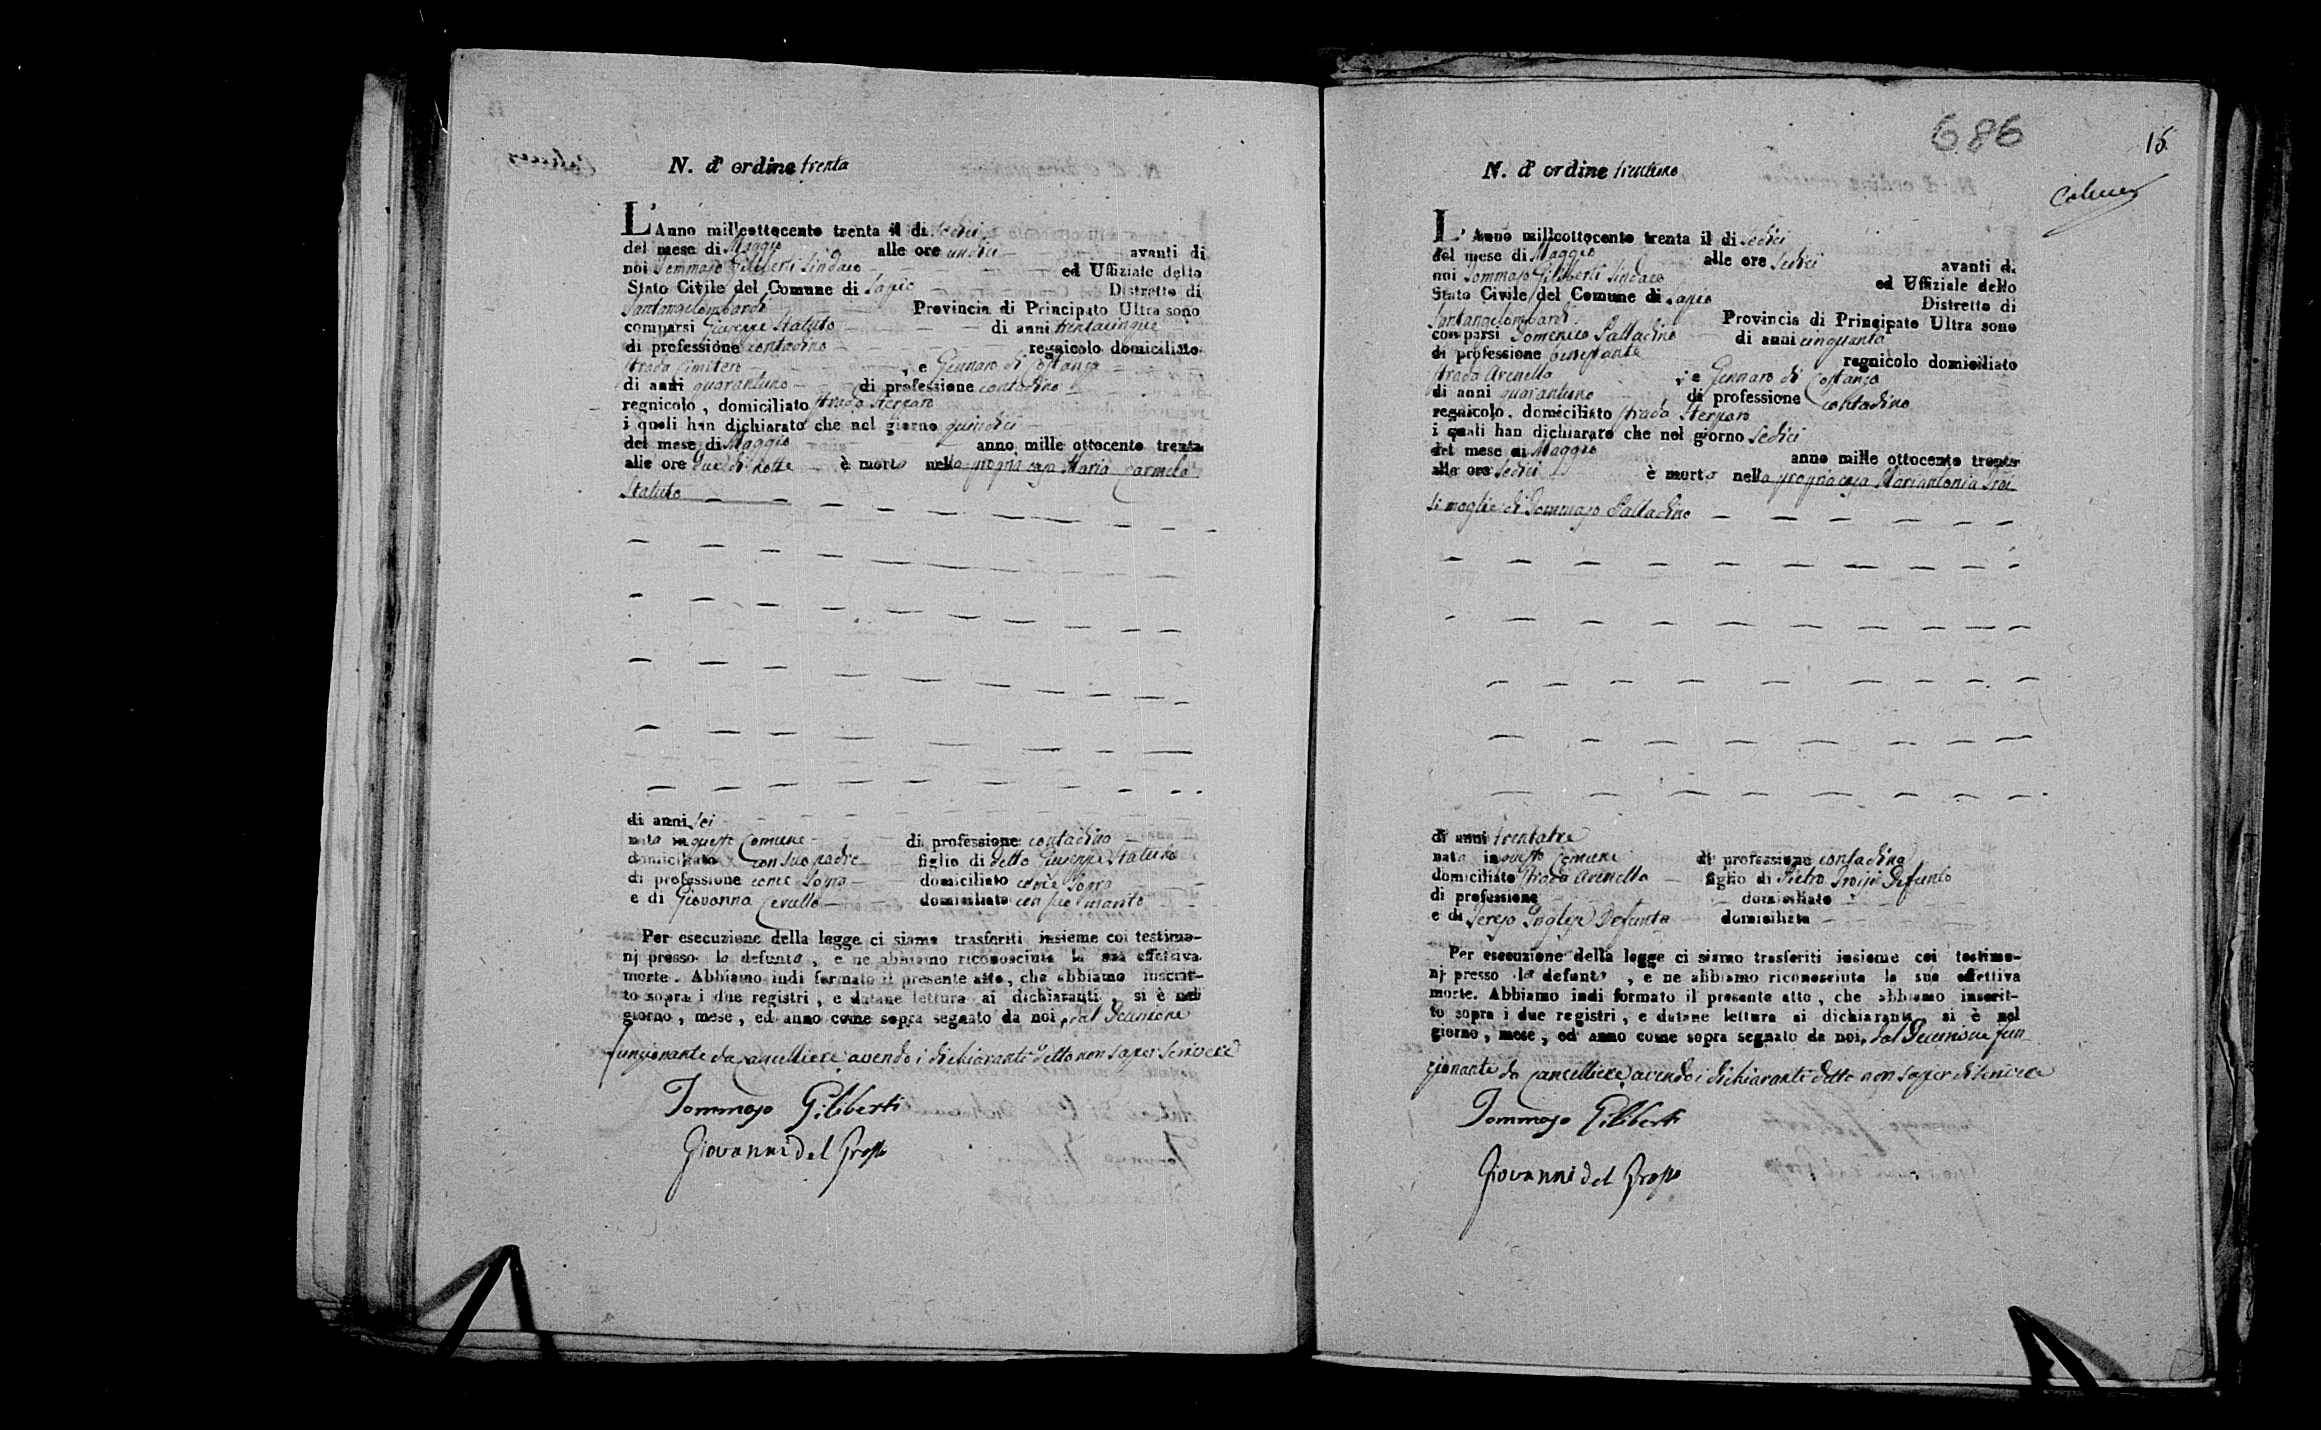 N. d' ordine trenta
L'Anno mill'ottocento trenta il dì sedici
del mese di Maggio alle ore undici avanti di
noi Tommaso Giliberti Sindaco ed Uffiziale dello
Stato Civile del Comune di Lapio Distretto di
Santangelolombardi Provincia di Principato Ultra sono
comparsi Giuseppe Statuto di anni trentacinque
di professione contadino regnicolo domiciliato
strada Cimitero , e Gennaro di Costanzo
di anni quarantuno di professione contadino
regnicolo, domiciliato strada Sterparo
i quali han dichiarato che nel giorno quindici
del mese di Maggio anno mille ottocento trenta
alle ore due di notte è morta nella propria casa Maria Carmela
Statuto
di anni sei
nata in questo Comune di professione contadina
domiciliata con suo padre figlia di detto Giuseppe Statuto
di professione come sopra domiciliato come sopra
e di Giovanna domiciliata con suo marito
Per esecuzione della legge ci siamo trasferiti insieme coi testimo-
nj presso la defunta, e ne abbiamo riconosciuta la sua effettiva
morte. Abbiamo indi formato il presente atto, che abbiamo inscrit-
to sopra i due registri, e datane lettura ai dichiaranti, si è nel
giorno, mese, ed anno come sopra segnato da noi, dal Decurione
funzionante da Cancelliere avendo i dichiaranti detto non saper scrivere
Tommaso Giliberti
Giovanni del Grosso
686
15
N. d' ordine trentuno
L'Anno millcottocento trenta il dì sedici
del mese di Maggio alle ore sedici avanti di
noi Tommaso Giliberti Sindaco ed Uffiziale dello
Stato Civile del Comune di Lapio Distretto di
Santangelolombardi Provincia di Principato Ultra sono
comparsi Domenico Palladino di anni cinquanta
di professione regnicolo domiciliato
strada Arenella , e Gennaro di Costanzo
di anni quarantuno di professione contadino
regnicolo, domiciliato strada Sterparo
i quali han dichiarato che nel giorno sedici
del mese di Maggio anno mille ottocento trenta
alle ore sedici è morta nella propria casa Mariantonia Troi
si moglie di Tommaso Palladino
di anni trentatre
nata in questo Comune di professione contadina
domiciliata strada Arenella figlia di Pietro Troisi Defunto
di professione domiciliato
e di Teresa Inglese Defunta domiciliata
Per esecuzione della legge ci siamo trasferiti insieme coi testimo-
nj presso la defunta, e ne abbiamo riconosciuta la sua effettiva
morte. Abbiamo indi formato il presente atto, che abbiamo inscrit-
to sopra i due registri, e datane lettura ai dichiaranti, si è nel
giorno, mese, ed anno come sopra segnato da noi, dal Decurione fun
zionante da Cancelliere avendo i dichiaranti detto non saper di scrivere
Tommaso Giliberti
Giovanni del Grosso